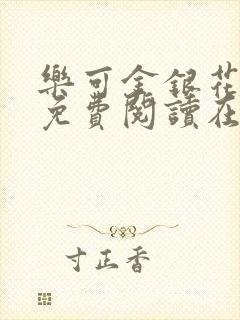 樂可金銀花
免費閱讀在
寸正香